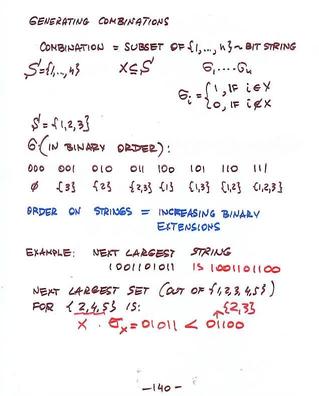 GENERATING COMBINATIONS
COMBINATION = SUBSET OF {1,...,n} ~ BIT STRING
S={1,...,n} X⊆S σ1....σn
σi = {1, IF i∈X
0, IF i∉X
S={1,2,3}
σ (IN BINARY ORDER):
000 001 010 011 100 101 110 111
∅ {3} {2} {2,3} {1} {1,3} {1,2} {1,2,3}
ORDER ON STRINGS = INCREASING BINARY
EXTENSIONS
EXAMPLE: NEXT LARGEST STRING
1001101011 IS 1001101100
NEXT LARGEST SET (OUT OF {1,2,3,4,5})
FOR {2,4,5} IS: {2,3}
X . σx = 01011 < 01100
-140-